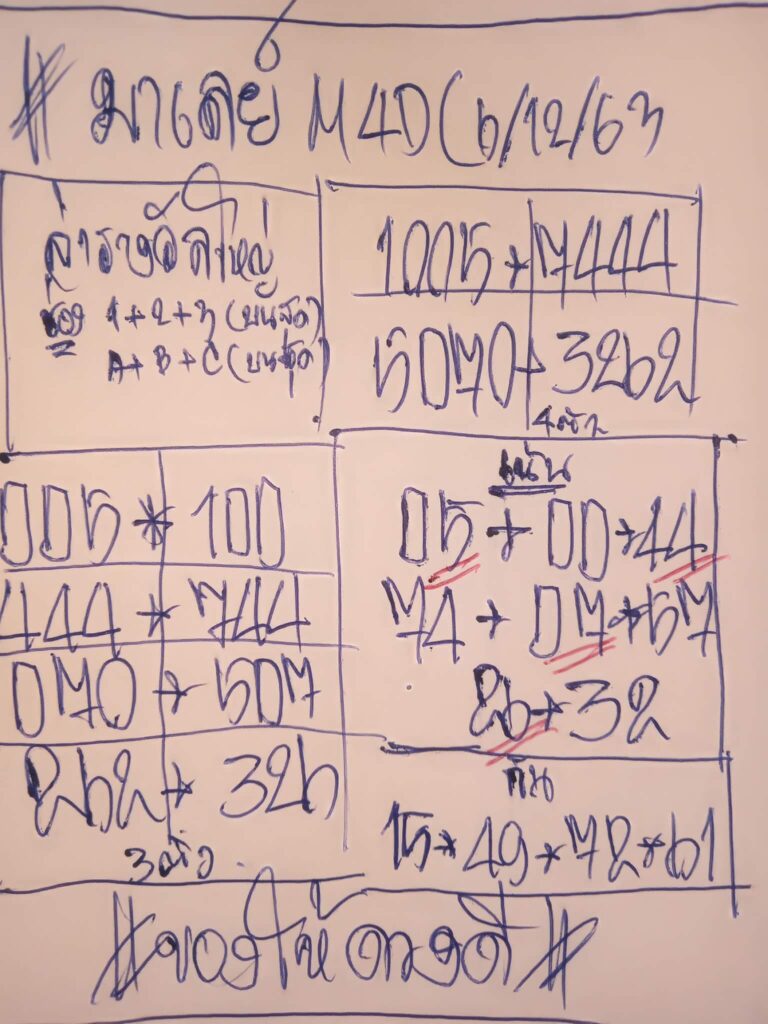 # มาเลย์ M4D (6/12/63
ของ 1+2+3 (บนสุด)
A+B+C (บนสุด)
1005+7444
5070+3262
4ตัว
005*100
444+744
070+507
262+326
3ตัว
เน้น
05+00+44
74+07+57
26+32
กัน
15*49*72*61
#ขอให้ดวงดี#